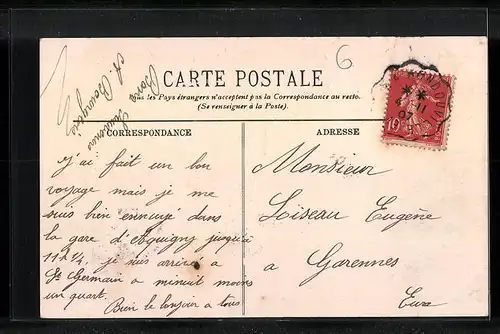 6
CARTE POSTALE
Tous les Pays étrangers n'acceptent pas la Correspondance au recto.
(Se renseigner à la Poste).
CORRESPONDANCE
ADRESSE
Bons
Souvenirs
A. Bourgeois
J'ai fait un bon
voyage mais je me
suis bien ennuyé dans
la gare d'Aquigny jusqu'à
11h¼, je suis arrivé a
St Germain a minuit moins
un quart.
Bien le bonjour a tous
Monsieur
Loiseau Eugène
a Garennes
Eure
10
11
07